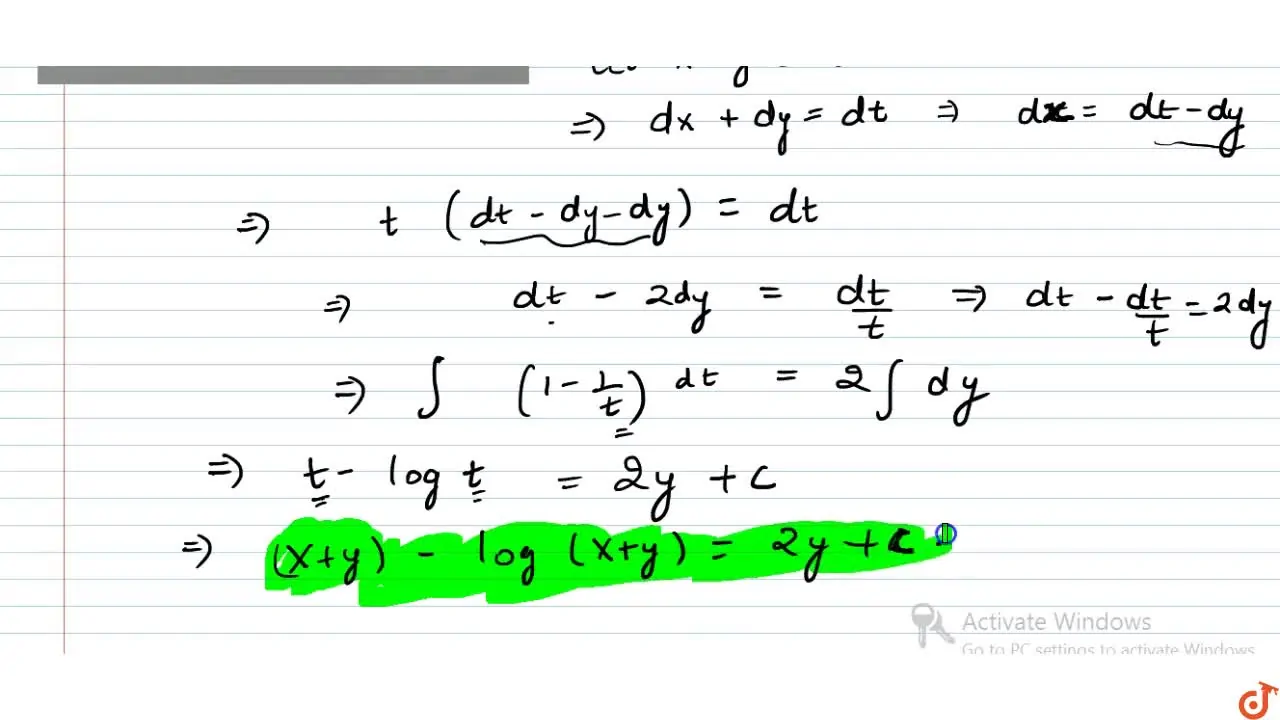 ⇒ dx + dy = dt ⇒ dx = dt - dy
⇒ t (dt - dy - dy) = dt
⇒ dt - 2dy = dt/t ⇒ dt - dt/t = 2dy
⇒ ∫ (1 - 1/t) dt = 2 ∫ dy
⇒ t - log t = 2y + c
⇒ (x+y) - log (x+y) = 2y + c
Activate Windows
Go to PC settings to activate Windows.